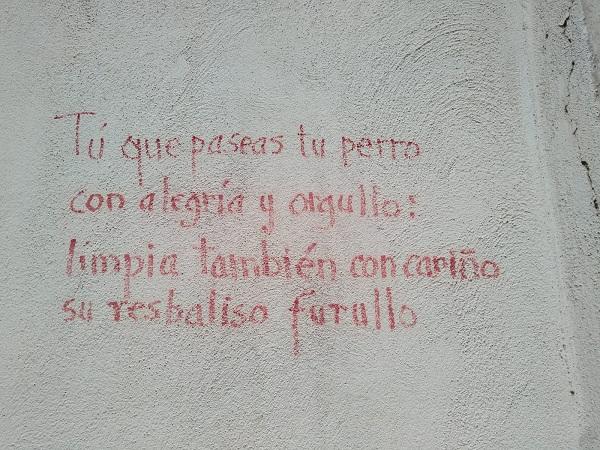 Tú que paseas tu perro
con alegría y orgullo:
limpia también con cariño
su resbaliso furullo